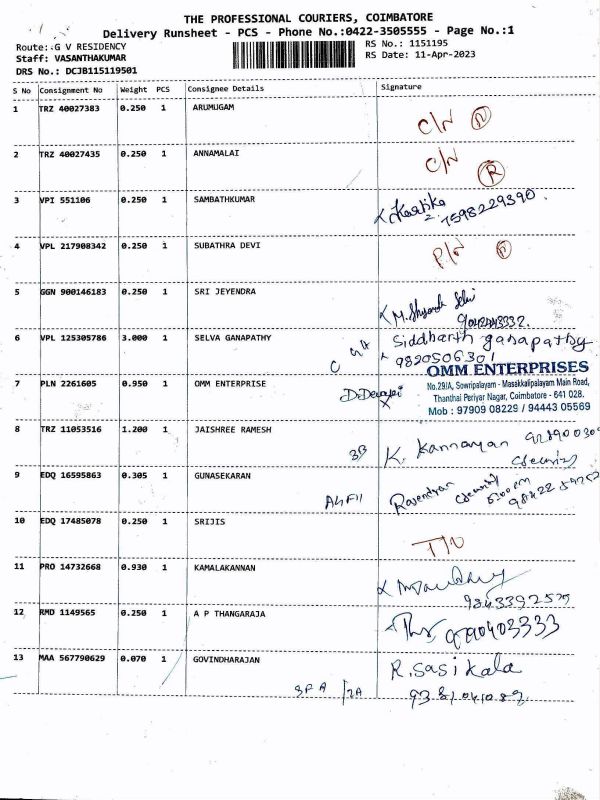 THE PROFESSIONAL COURIERS, COIMBATORE
Delivery Runsheet - PCS - Phone No.:0422-3505555 - Page No.:1
Route: G V RESIDENCY
RS No.: 1151195
Staff: VASANTHAKUMAR
RS Date: 11-Apr-2023
DRS No.: DCJB115119501
S No Consignment No Weight PCS Consignee Details Signature
1 TRZ 40027383 0.250 1 ARUMUGAM C/N
2 TRZ 40027435 0.250 1 ANNAMALAI C/N R
3 VPI 551106 0.250 1 SAMBATHKUMAR Kartika 7598229390
4 VPL 217908342 0.250 1 SUBATHRA DEVI P/N
5 GGN 900146183 0.250 1 SRI JEYENDRA
6 VPL 125305786 3.000 1 SELVA GANAPATHY Siddharth ganapathy
9820506301
OMM ENTERPRISES
7 PLN 2261605 0.950 1 OMM ENTERPRISE
No.29/A, Sowripalayam - Masakkalipalayam Main Road,
Thanthai Periyar Nagar, Coimbatore - 641 028.
Mob : 97909 08229 / 94443 05569
8 TRZ 11053516 1.200 1 JAISHREE RAMESH
3B K. Kannayan
9 EDQ 16595863 0.305 1 GUNASEKARAN
Rajendran
10 EDQ 17485078 0.250 1 SRIJIS
11 PRO 14732668 0.930 1 KAMALAKANNAN
12 RMD 1149565 0.250 1 A P THANGARAJA
13 MAA 567790629 0.070 1 GOVINDHARAJAN R. Sasikala